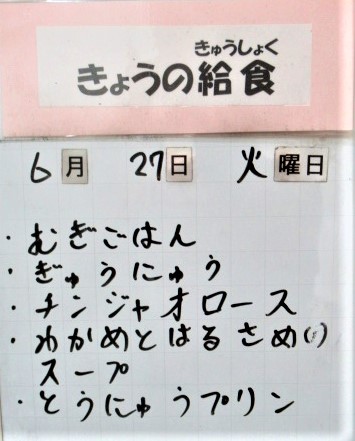 きゅうしょく
きょうの給食
6月 27日 火曜日
・むぎごはん
・ぎゅうにゅう
・チンジャオロース
・わかめとはるさめの
スープ
・とうにゅうプリン